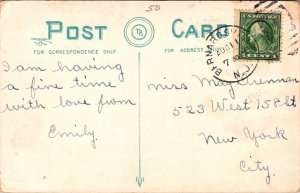 50
POST CARD
FOR CORRESPONDENCE ONLY
FOR ADDRESS
TB
N.J.
I am having
a fine time
with love from
Emily
Miss May
523 West 15 St
New York
City.